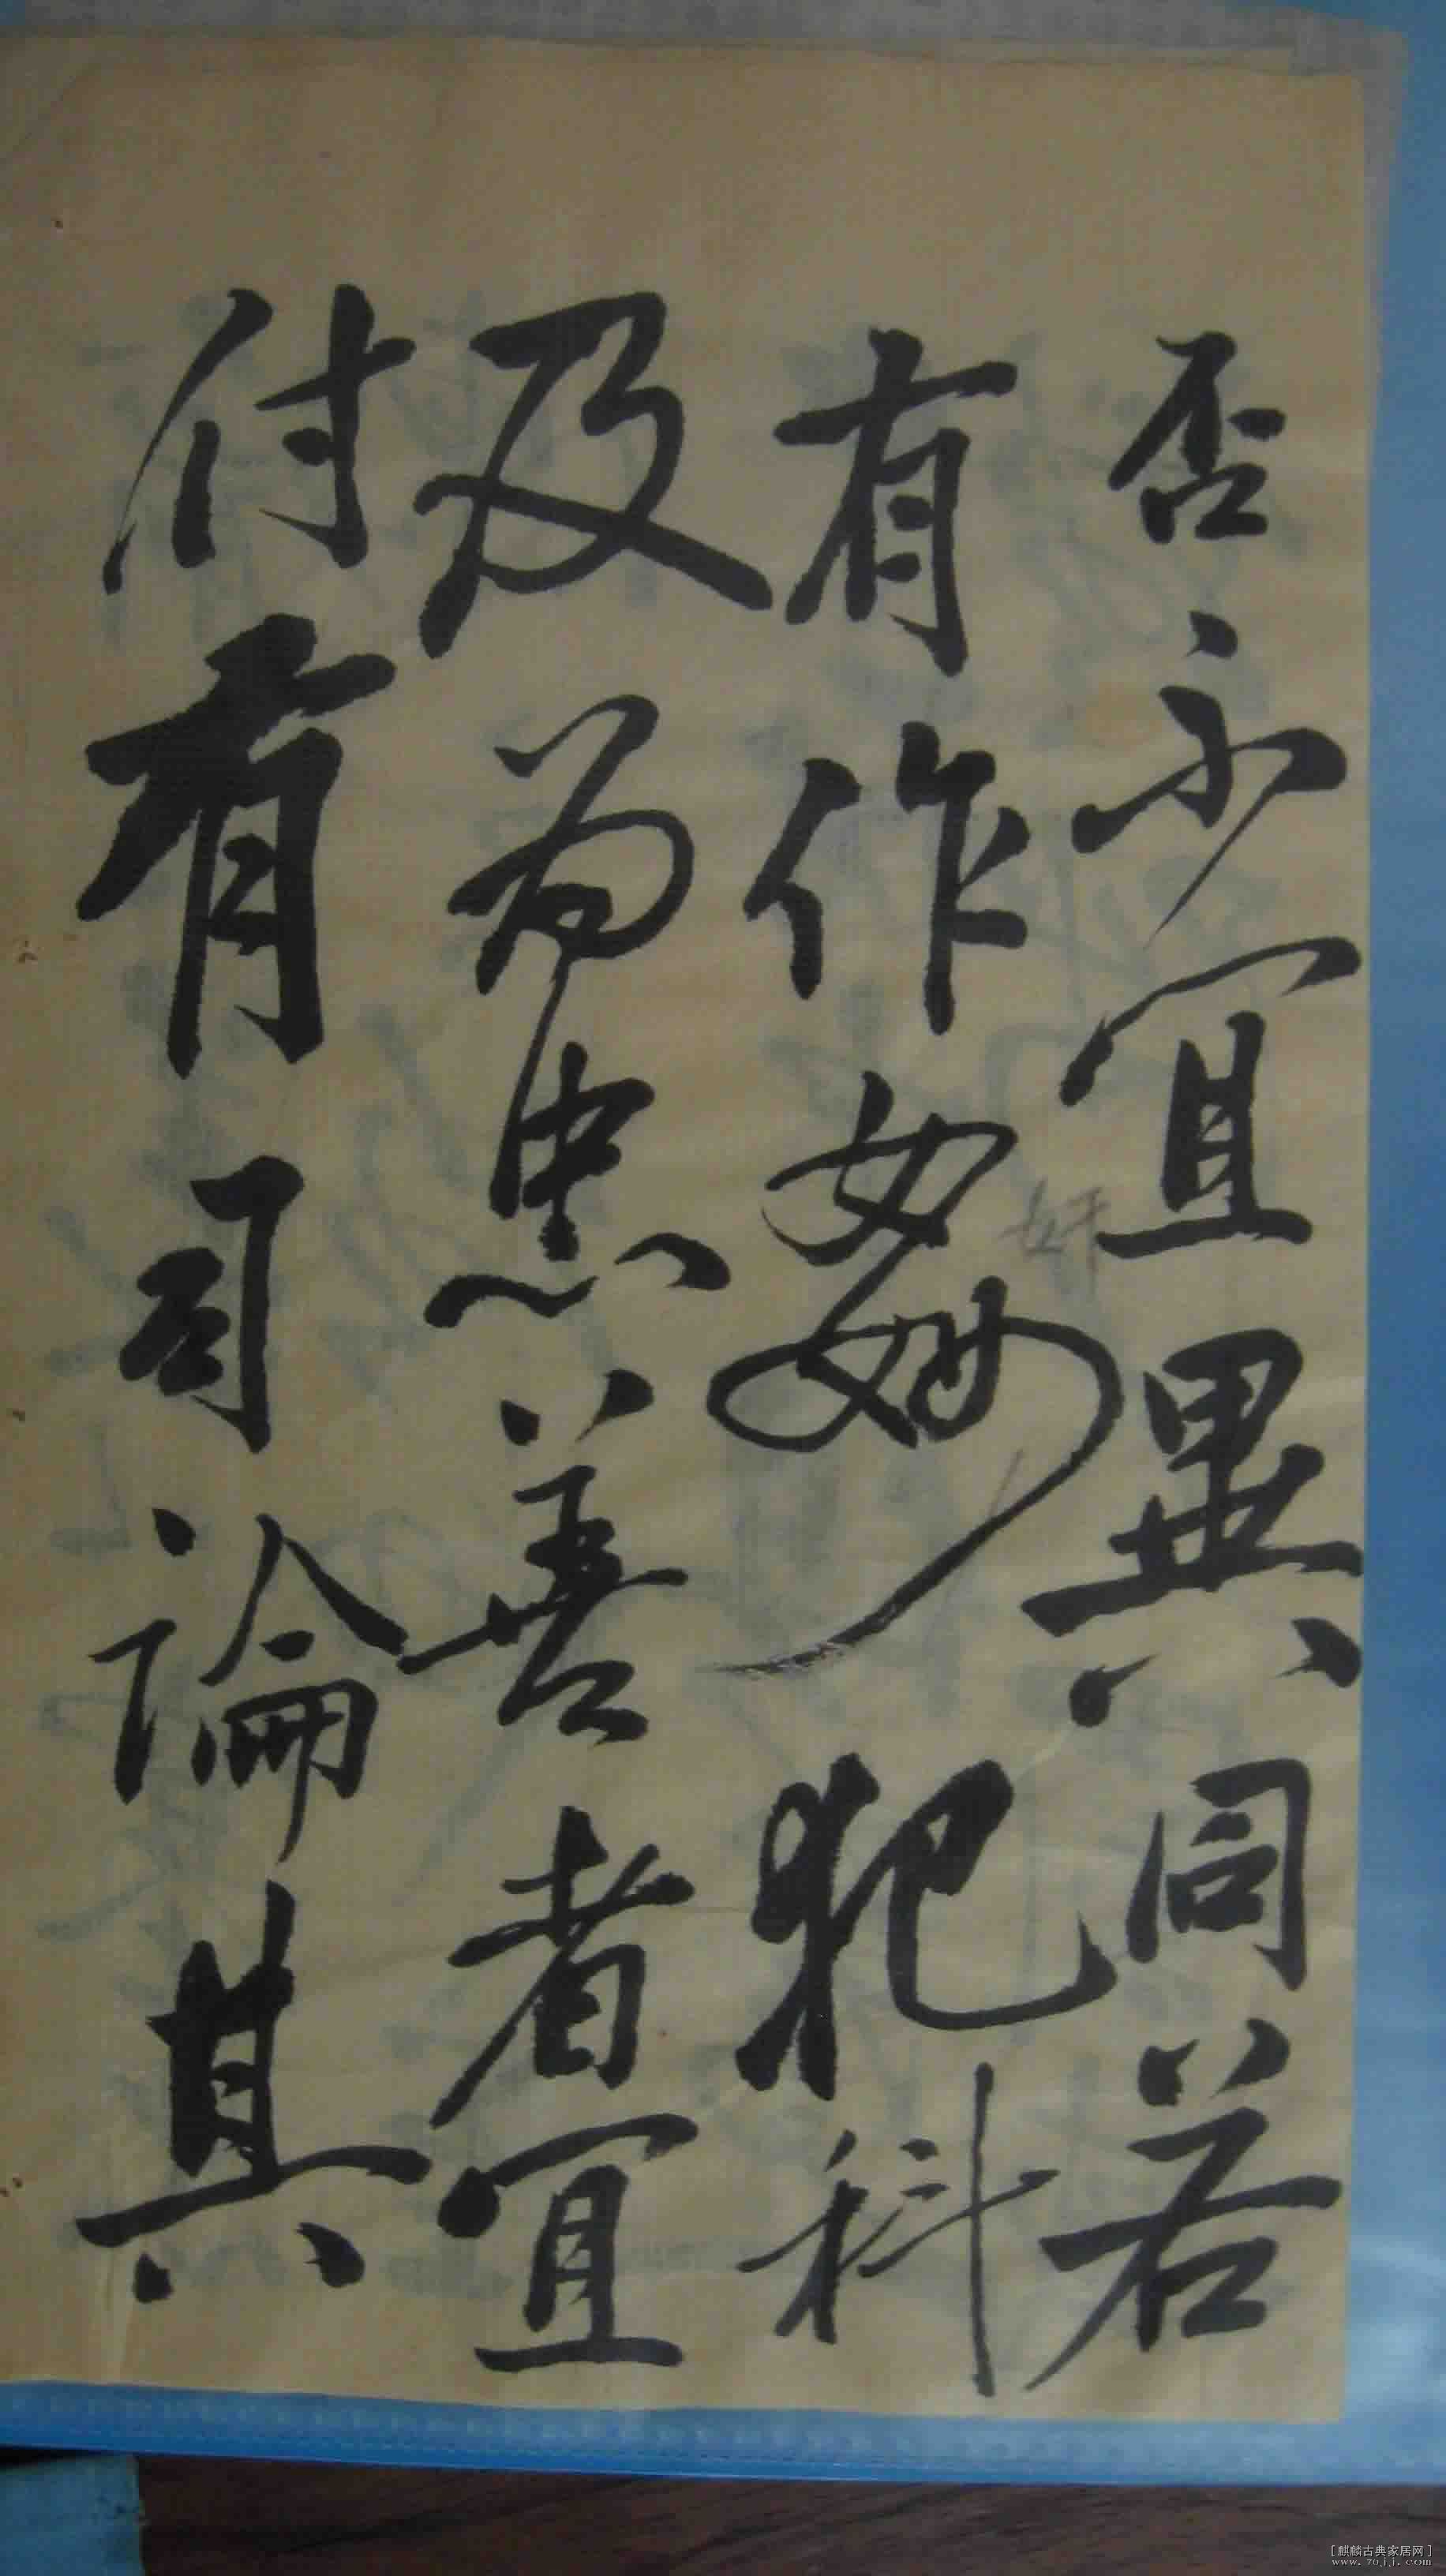 否不宜異同若
有作姦犯科
奸
及為忠善者宜
付有司論其
[麒麟古典家居网]
www.7ojj.com